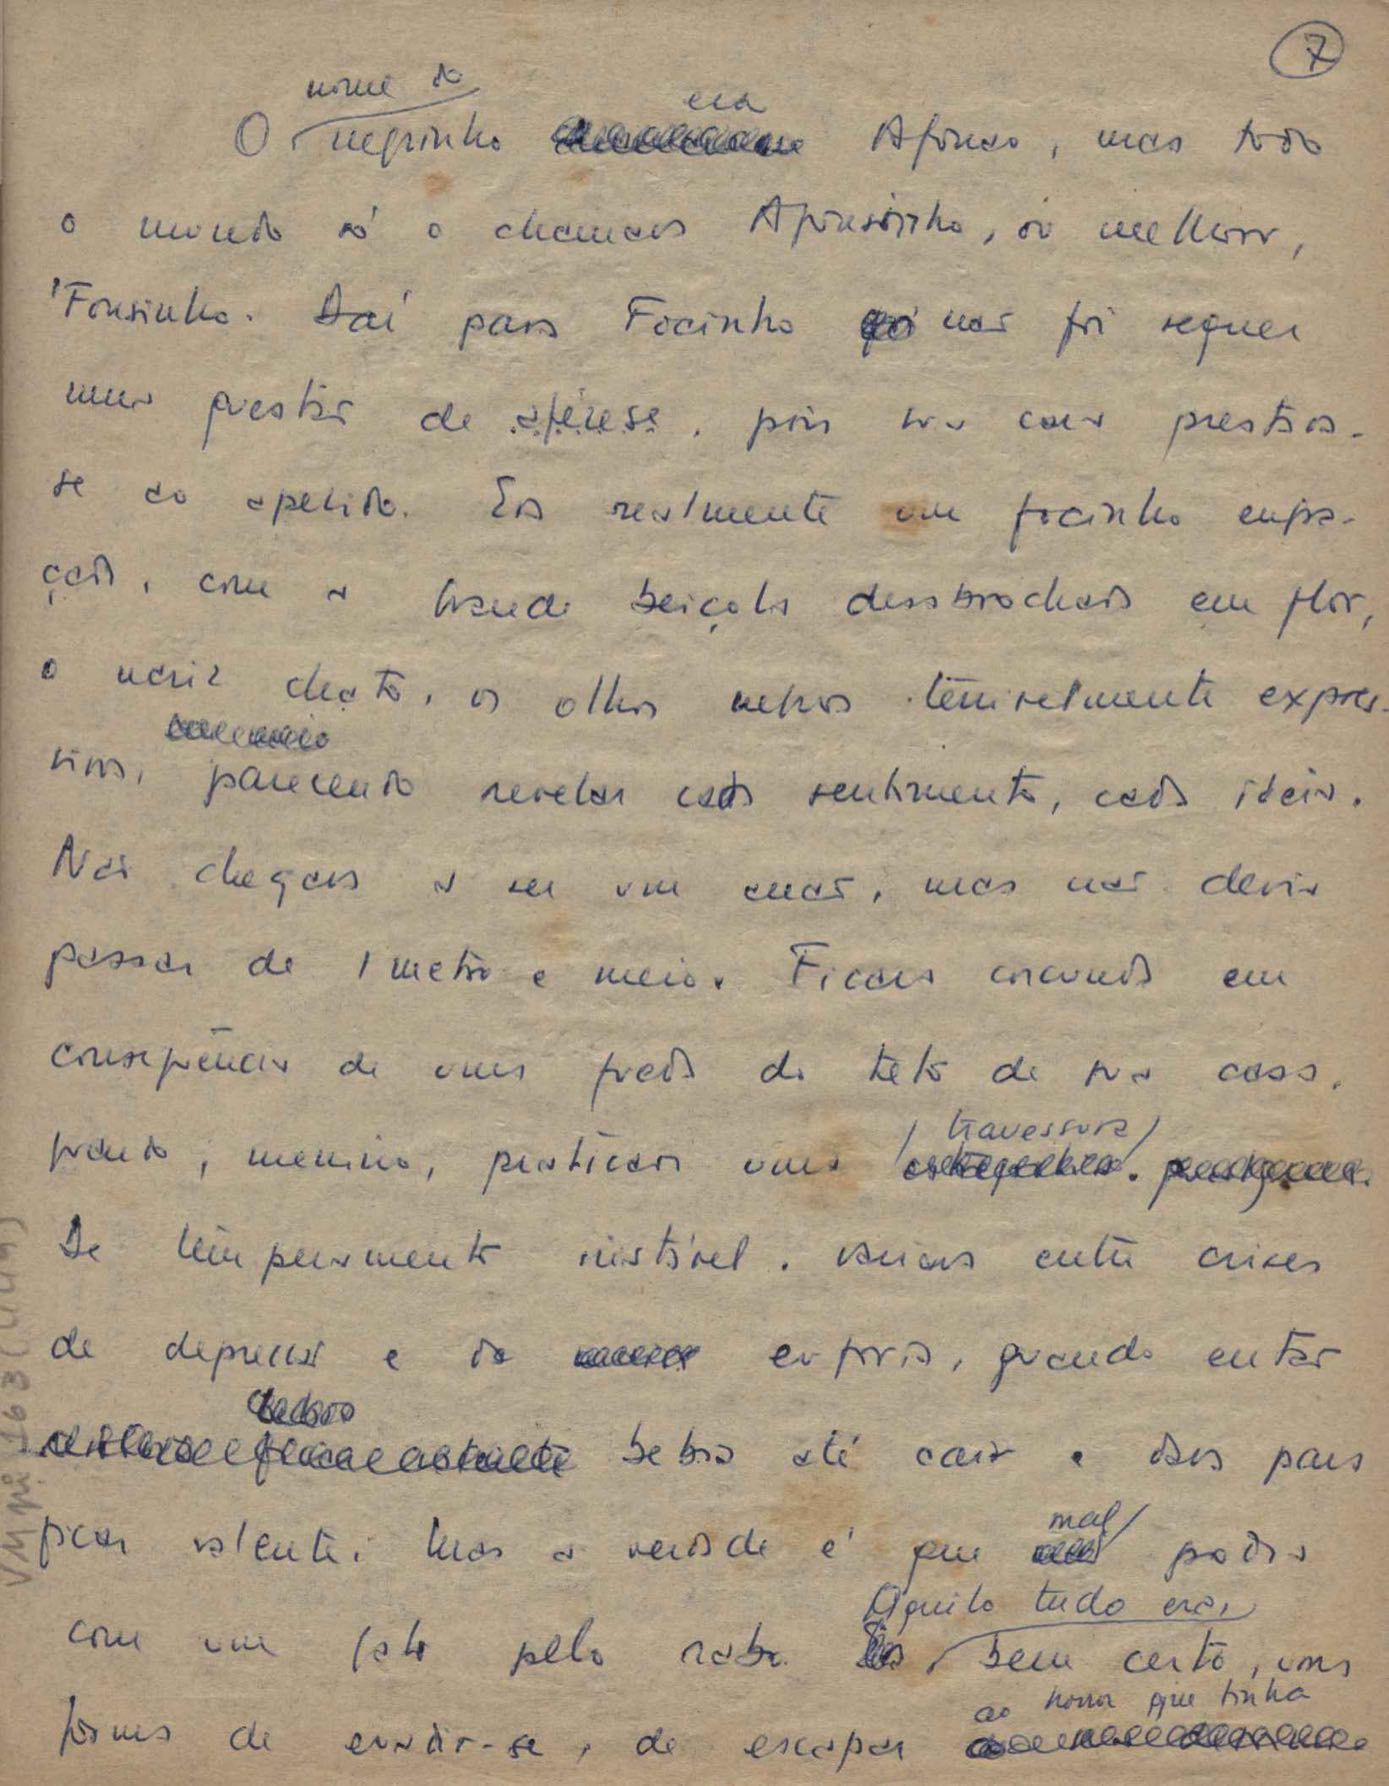 7
nome do
O negrinho era Afonso, mas todo
o mundo só o chamava Afonsinho, ou melhor,
'Fonsinho. Daí para Focinho não foi sequer
uma questão de aférese, pois sua cara prestava-
se ao apelido. Era realmente um focinho engra-
çado, com a grande beiçola desabrochada em flor,
o nariz chato, os olhos negros terrivelmente expres-
sivos, parecendo revelar cada sentimento, cada idéia.
Não chegava a ser um anão, mas não devia
passar de 1 metro e meio. Ficara corcunda em
conseqüência de uma queda do teto de sua casa,
quando, menino, praticara uma travessura.
De temperamento instável, variava entre crises
de depressão e de euforia, quando então
bebia até cair e dava para
ficar valente. Mas a verdade é que mal podia
com um gato pelo rabo. Aquilo tudo era,
bem certo, uma
forma de evadir-se, de escapar ao horror que tinha
VM pi 163 (